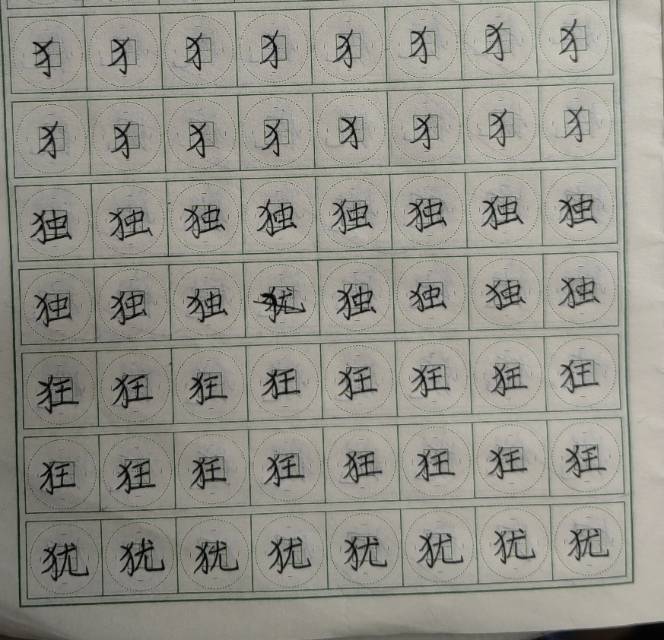 犭犭犭犭犭犭犭犭
犭犭犭犭犭犭犭犭
独独独独独独独独
独独独犹独独独独
狂狂狂狂狂狂狂狂
狂狂狂狂狂狂狂狂
犹犹犹犹犹犹犹犹